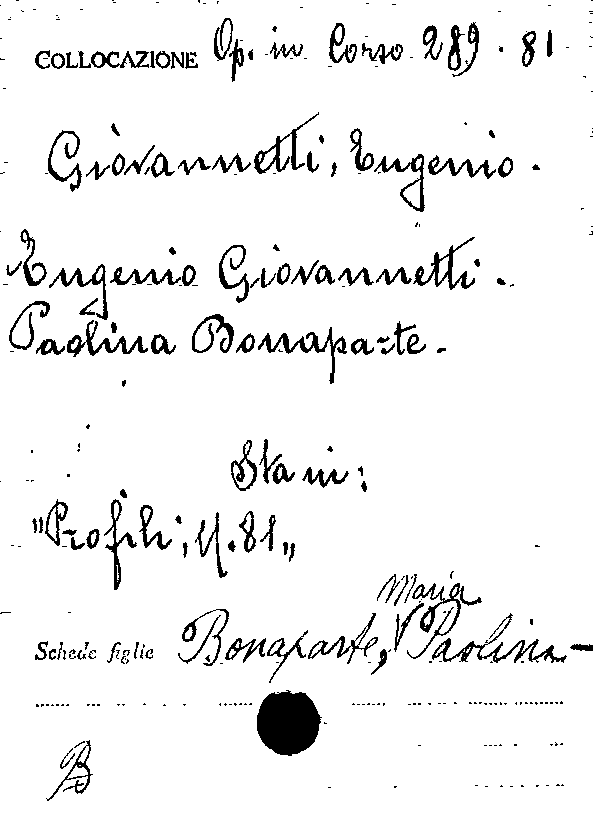 COLLOCAZIONE Op. in Corso 289.81
Giovannetti, Eugenio.
Eugenio Giovannetti.
Paolina Bonaparte.
Sta in:
"Profili, N. 81"
Maria
Schede figlie Bonaparte, Paolina-
B